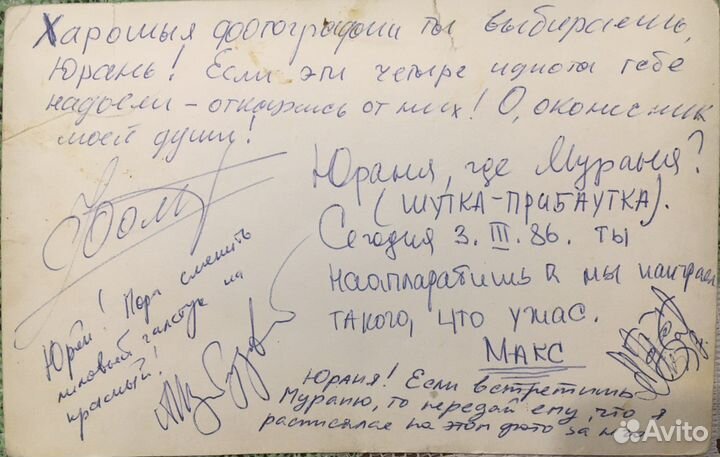 Харошыя фотографии ты выбираешь,
Юрань! Если эти четыре идиота тебе
надоели - откажись от них! О, окописник
моей души!
Юраня, где Мураня?
(ШУТКА-ПРИБАУТКА).
Сегодня 3.III.86. ты
наапладатишь а мы наиграем
ТАКОГО, ЧТО УЖАС.
МАКС
Юрей! Пора сменить
пиковый галстук на
красный!
Юраня! Если встретишь
Мураню, то передай ему, что я
расписался на этом фото за него
Avito